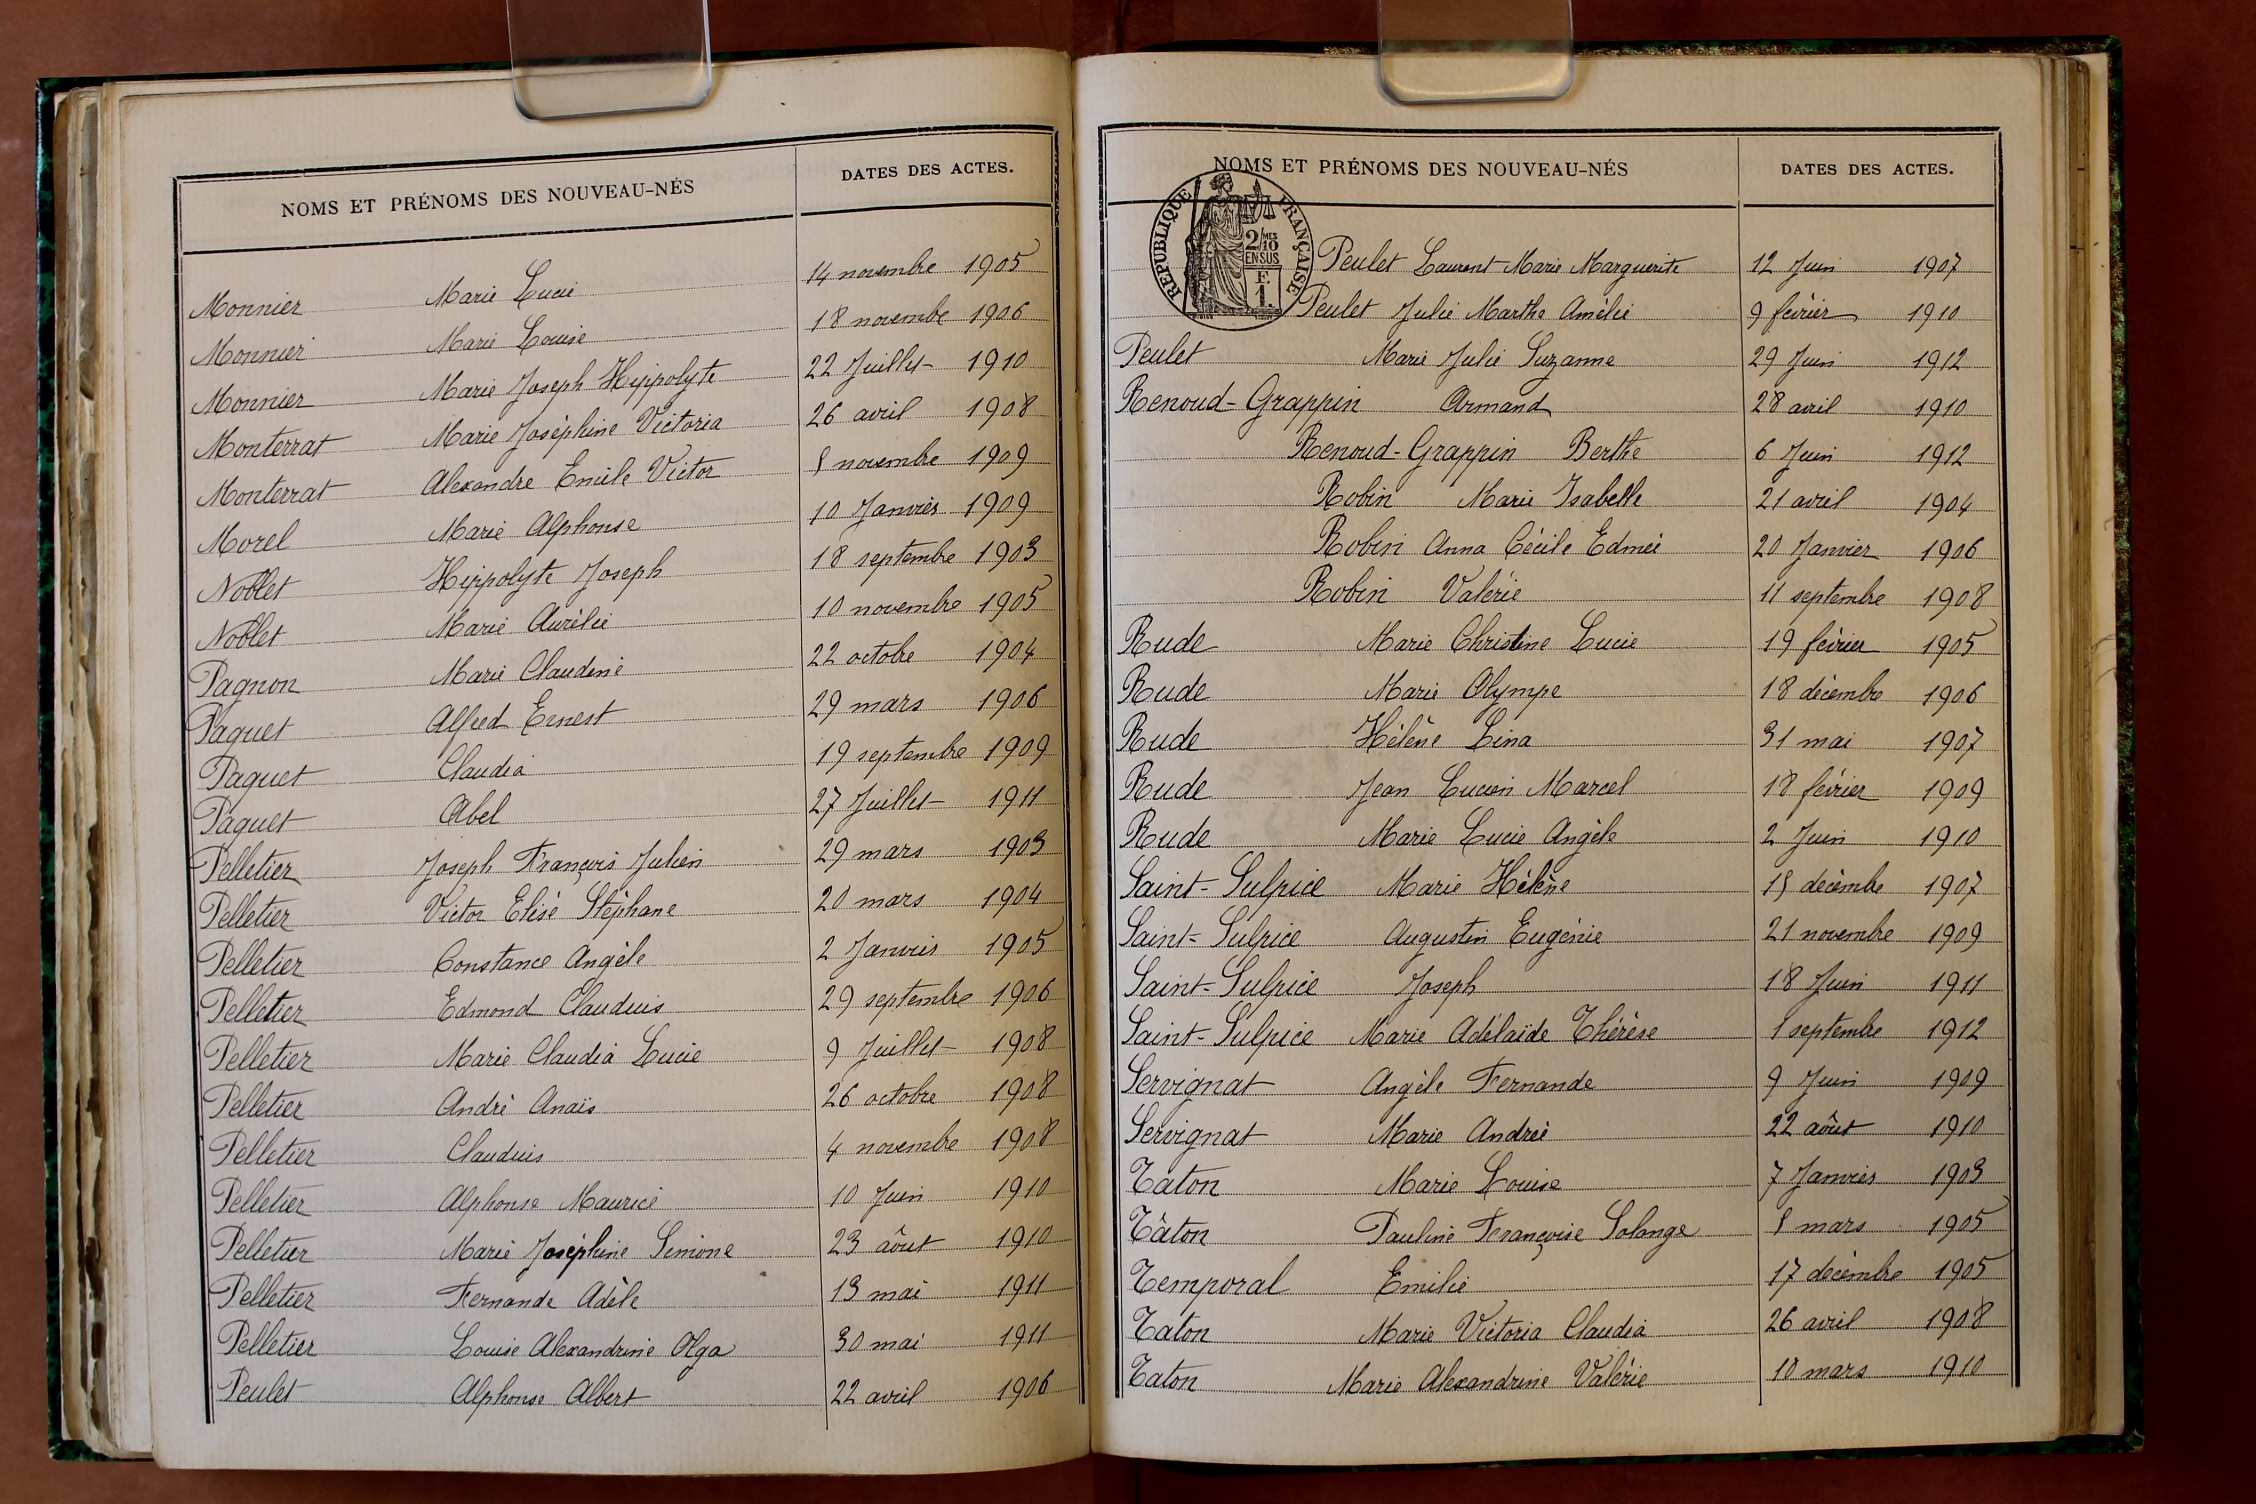 NOMS ET PRÉNOMS DES NOUVEAU-NÉS DATES DES ACTES.
Monnier Marie Lucie 14 novembre 1905
Monnier Marie Louise 18 novembe 1906
Monnier Marie Joseph Hyppolyte 22 Juillet 1910
Monterrat Marie Joséphine Victoria 26 avril 1908
Monterrat Alexandre Emile Victor 8 novembre 1909
Morel Marie Alphonse 10 Janvier 1909
Noblet Hippolyte Joseph 18 septembre 1903
Noblet Marie Aurélie 10 novembre 1905
Pagnon Marie Claudine 22 octobre 1904
Paquet Alfred Ernest 29 mars 1906
Paquet Claudia 19 septembre 1909
Paquet Abel 27 Juillet 1911
Pelletier Joseph François Julien 29 mars 1903
Pelletier Victor Elisé Stéphane 20 mars 1904
Pelletier Constance Angèle 2 Janvier 1905
Pelletier Edmond Claudius 29 septembre 1906
Pelletier Marie Claudia Lucie 9 Juillet 1908
Pelletier André Anaïs 26 octobre 1908
Pelletier Claudius 4 novembre 1908
Pelletier Alphonse Maurice 10 Juin 1910
Pelletier Marie Joséphine Simone 23 âout 1910
Pelletier Fernande Adèle 13 mai 1911
Pelletier Louise Alexandrine Olga 30 mai 1911
Peulet Alphonse Albert 22 avril 1906
NOMS ET PRÉNOMS DES NOUVEAU-NÉS DATES DES ACTES.
REPUBLIQUE FRANÇAISE
2/10 MES
EN SUS
F.
1.
Peulet Laurent Marie Marguerite 12 Juin 1907
Peulet Julie Marthe Amélie 9 février 1910
Peulet Marie Julie Suzanne 29 Juin 1912
Renoud-Grappin Armand 28 avril 1910
Renoud-Grappin Berthe 6 Juin 1912
Robin Marie Isabelle 21 avril 1904
Robin Anna Cécile Edmée 20 Janvier 1906
Robin Valérie 11 septembre 1908
Rude Marie Christine Lucie 19 février 1905
Rude Marie Olympe 18 décembre 1906
Rude Hélène Lina 31 mai 1907
Rude Jean Lucien Marcel 18 février 1909
Rude Marie Lucie Angèle 2 Juin 1910
Saint-Sulpice Marie Hélène 15 décembe 1907
Saint-Sulpice Augustin Eugénie 21 novembre 1909
Saint-Sulpice Joseph 18 Juin 1911
Saint-Sulpice Marie Adélaïde Thérèse 1 septembre 1912
Servignat Angèle Fernande 9 Juin 1909
Servignat Marie Andrée 22 aôut 1910
Taton Marie Louise 7 Janvier 1903
Tâton Pauline Françoise Solange 8 mars 1905
Temporal Emilie 17 décembre 1905
Taton Marie Victoria Claudia 26 avril 1908
Taton Marie Alexandrine Valérie 10 mars 1910